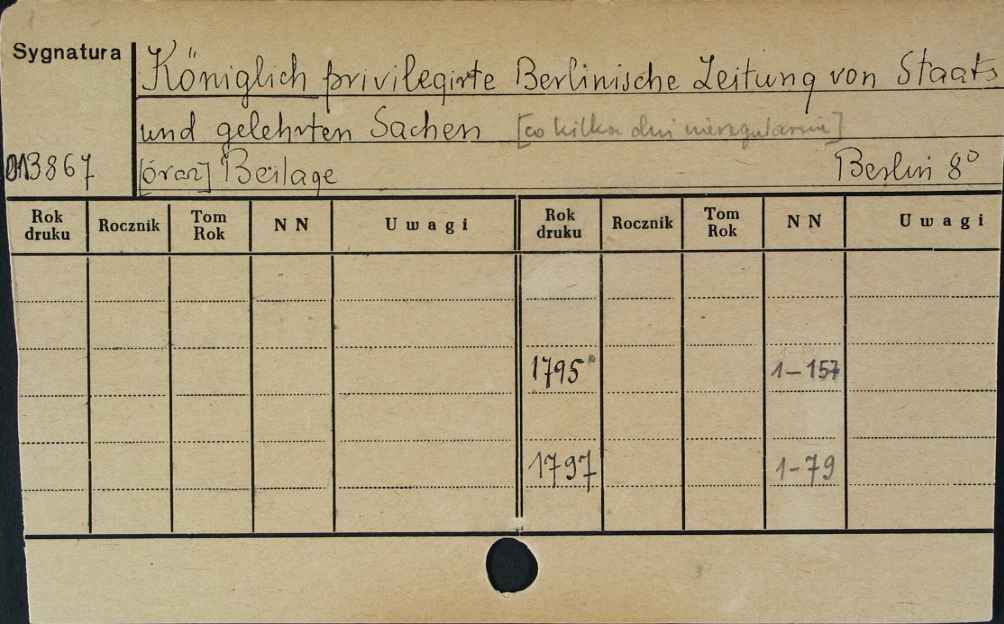 Sygnatura
Königlich privilegirte Berlinische Zeitung von Staats
und gelehrten Sachen [co kilka dni nieregularnie]
013867 [oraz] Beilage Berlin 8°
Rok druku Rocznik Tom Rok N N Uwagi Rok druku Rocznik Tom Rok N N Uwagi
1795 1-157
1797 1-79